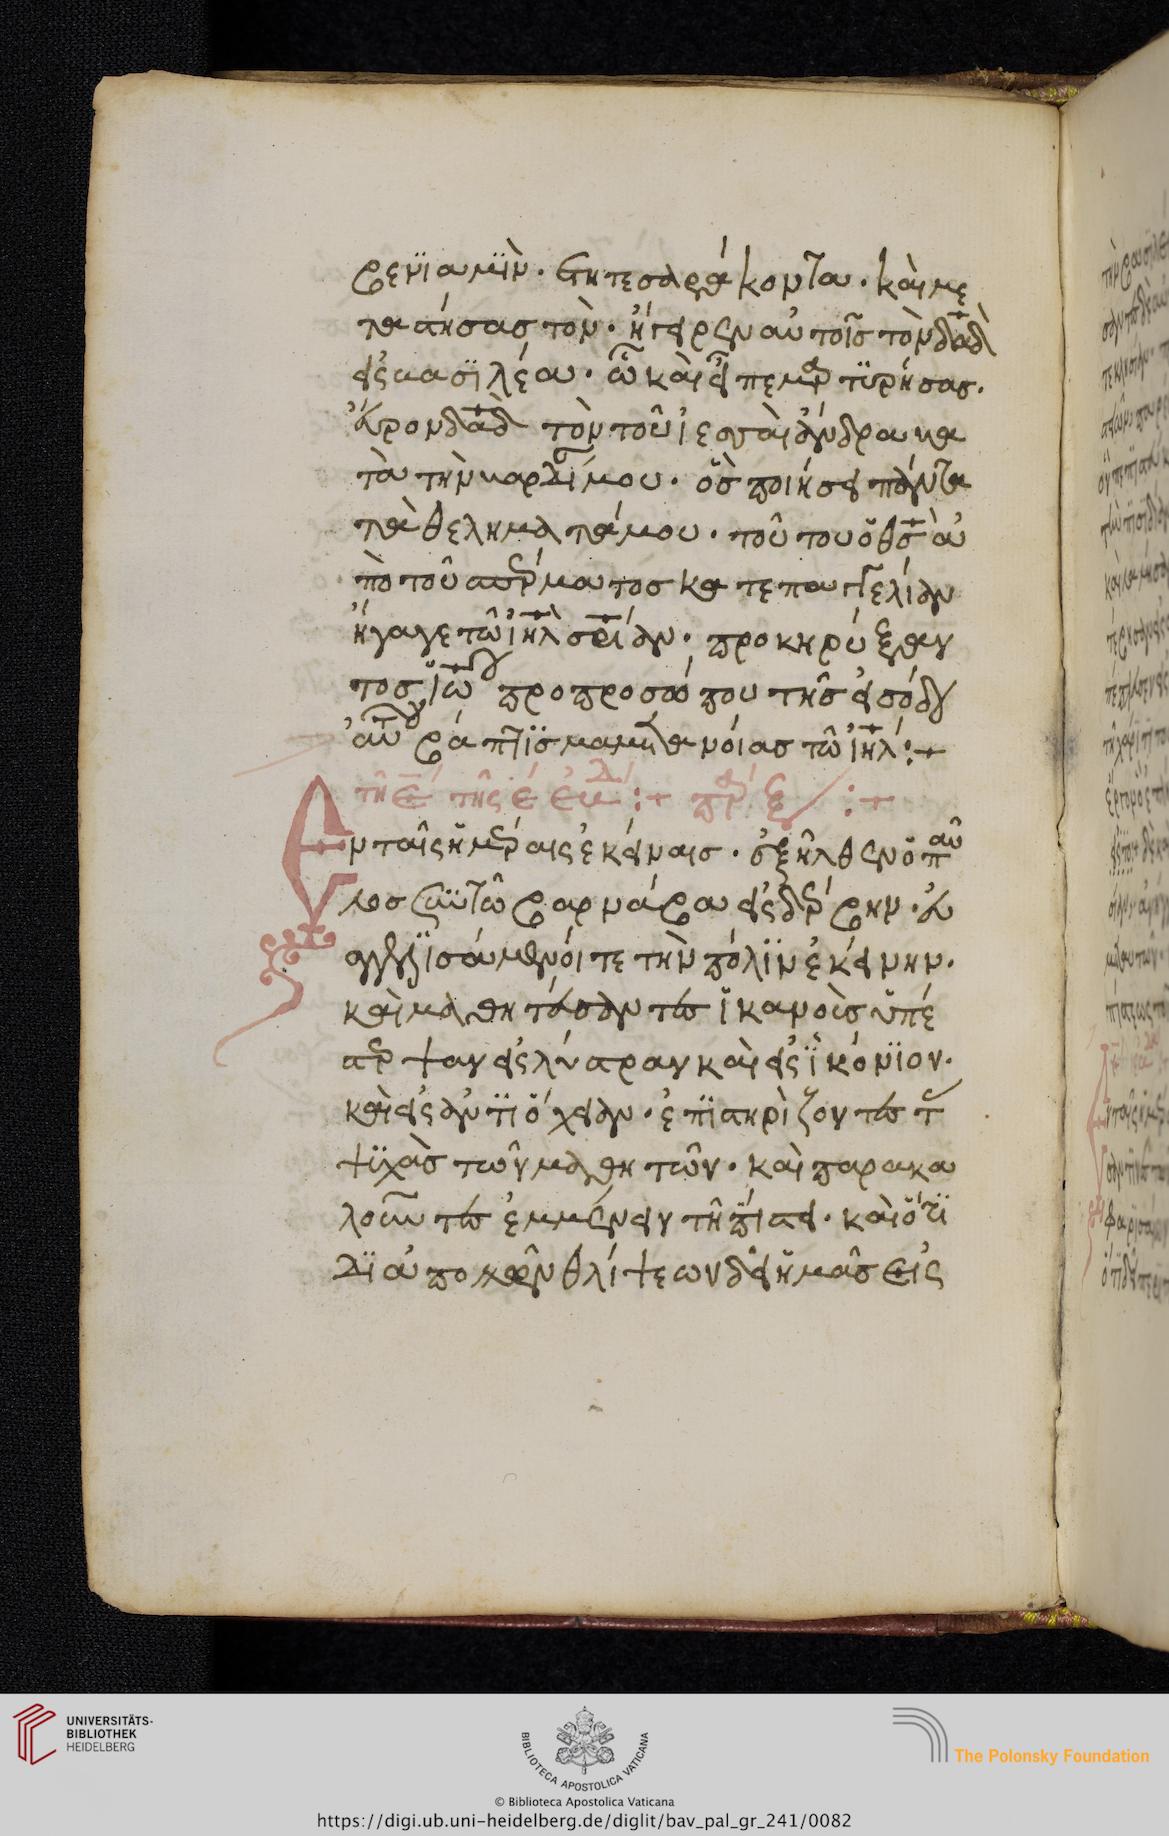 βενϊαμϊν. ἔτη τεσσαράκοντα. καὶ με
ταστήσας τὸν. ἤγειρεν αὐτοῖς τὸν δαδ
εἰς βασϊλέα. ὧ καὶ εἶπε μαρτϋρήσας.
εὗρον δαδ τὸν τοῦ ἰεσσαὶ ἄνδρα κα
τὰ τὴν καρδίαν μου. ὃς ποιήσει πάντα
τὰ θελήματά μου. τούτου ὁ θς ἀ
πὸ τοῦ σπέρματος κατ ἐπαγγελίαν
ἤγαγε τῶ ἰηλ σρίαν. προκηρύξαν
τος ἰω προ προσώπου τῆς εἰσόδου
αὐτοῦ βάπτϊσμα μετανοίας τῶ ἰηλ :+
τῆ ε τῆς ε ἑβδ :+ πρξ :+
Εν ταῖς ἡμέραις ἐκείναις. ἐξῆλθεν ὁ παῦ
λος σὺν τῶ βαρνάβα εἰς δέρβην. εὐ
αγγελϊσάμενοί τε τὴν πόλϊν ἐκείνην.
καὶ μαθητεύσαντες ἱκανοὺς ὑπέ
στρεψαν εἰς λύστραν καὶ εἰς ϊκόνϊον.
καὶ εἰς ἀντϊόχειαν. ἐπϊστηρίζοντες τὰς
ψϋχὰς τῶν μαθητῶν. καὶ παρακα
λοῦντες ἐμμένειν τῆ πίστει. καὶ ὅτϊ
δϊὰ πολλῶν θλίψεων δεῖ ἡμᾶς εἰς
UNIVERSITÄTS-
BIBLIOTHEK
HEIDELBERG
BIBLIOTECA APOSTOLICA VATICANA
The Polonsky Foundation
© Biblioteca Apostolica Vaticana
https://digi.ub.uni-heidelberg.de/diglit/bav_pal_gr_241/0082